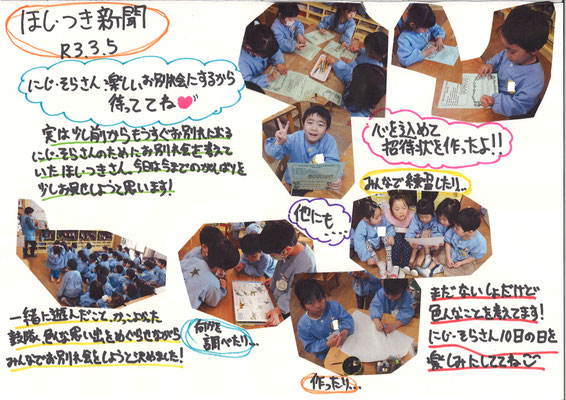 ほし・つき新聞
R3.3.5
にじ・そらさん、楽しいお別れ会にするから
待っててね
実は少し前からもうすぐお別れになる
にじ・そらさんのためにお別れ会を考えて
いたほし・つきさん。今日は今までのがんばりを
少しお見せしようと思います!
心を込めて
招待状を作ったよ!!
みんなで練習したり..
他にも
....
一緒に遊んだこと、かっこよかった
鼓隊、色んな思い出をめぐらせながら
みんなでお別れ会をしようと決めました!
何かを
調べたり...
作ったり...
まだないしょだけど
色んなことを考えてます!
にじ・そらさん10日の日を
楽しみにしててね